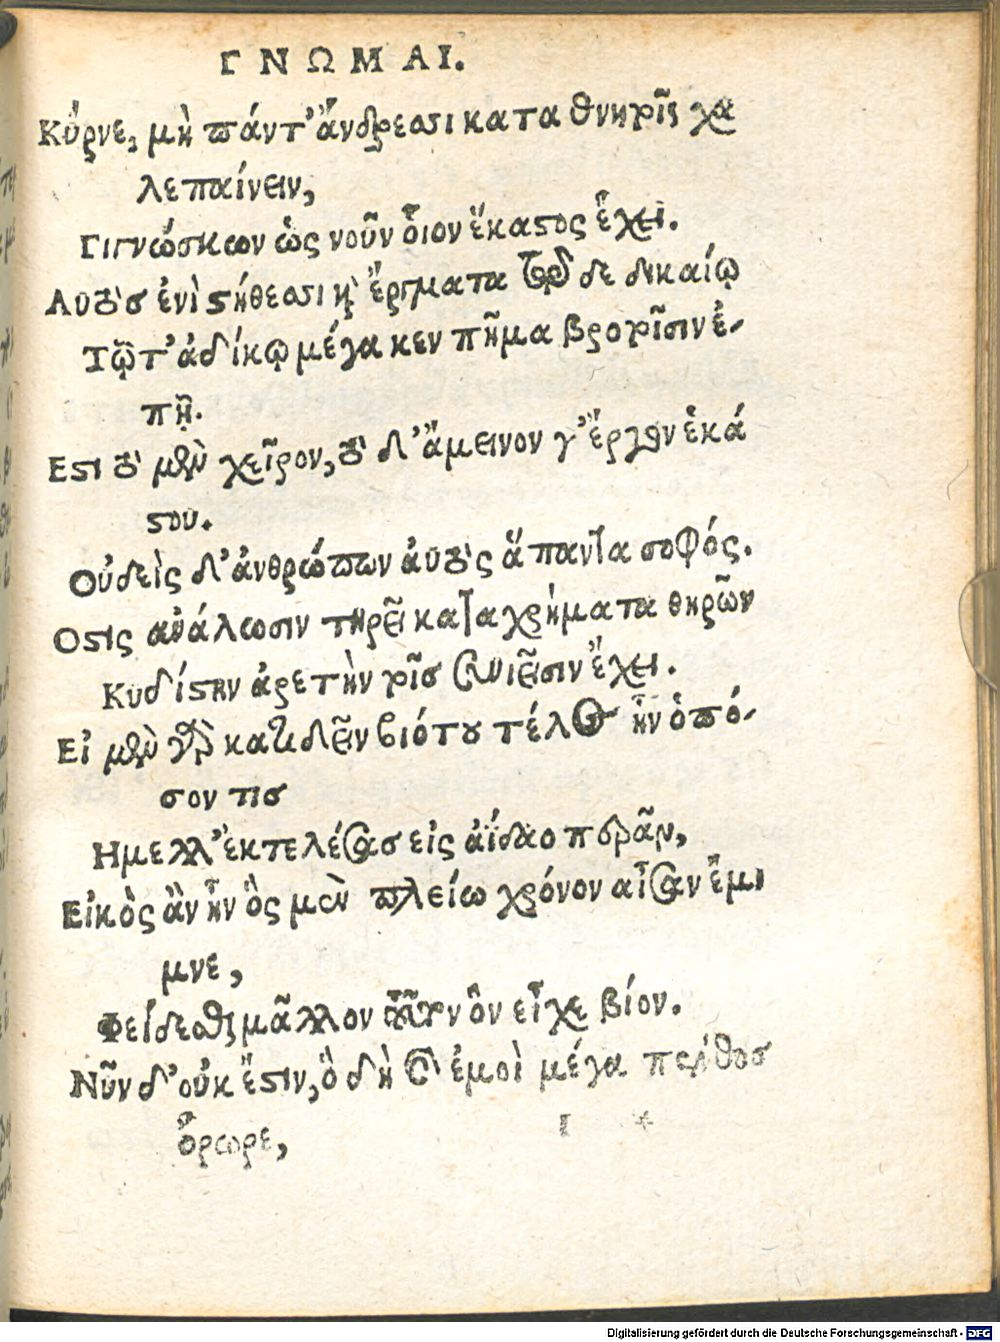 ΓΝΩΜΑΙ.
Κύρνε, μὴ πάντ' ἄνδρεσσι κατα θνητοῖς χα
λεπαίνειν,
Γιγνώσκων ὡς νοῦν οἷον ἕκαστος ἔχει.
Αὐτὸσ ἐνὶ στήθεσσι κỳ ἔργματα τῷ δε δικαίῳ
Τῷτ' ἀδίκῳ μέγα κεν πῆμα βροτοῖσιν ἐ-
πῇ.
Εστι τὸ μὲν χεῖρον, τὸ δ' ἄμεινον γ' ἔργον ἑκά
στου.
Οὐδεὶς δ' ἀνθρώπων ἀυτὸς ἅπαντα σοφός.
Οστις ἀνάλωσιν τηρεῖ κατα χρήματα θηρῶν
Κυδίστην ἀρετὴν τοῖσ συνιεῖσιν ἔχει.
Εἰ μὲν γὰρ κατιδεῖν βιότου τέλος ἦν ὁπό-
σον τισ
Ημελλ' ἐκτελέσασ εἰς ἀΐδαο περᾶν,
Εἰκὸς ἂν ἦν ὃς μὲν πλείω χρόνον αἶσαν ἔμι
μνε,
Φείδεσθαι μᾶλλον ὃν εἶχε βίον.
Νῦν δ' οὐκ ἔστιν, ὃ δὴ ἐμοὶ μέγα πένθοσ
ὄρωρε,
I *
Digitalisierung gefördert durch die Deutsche Forschungsgemeinschaft - DFG